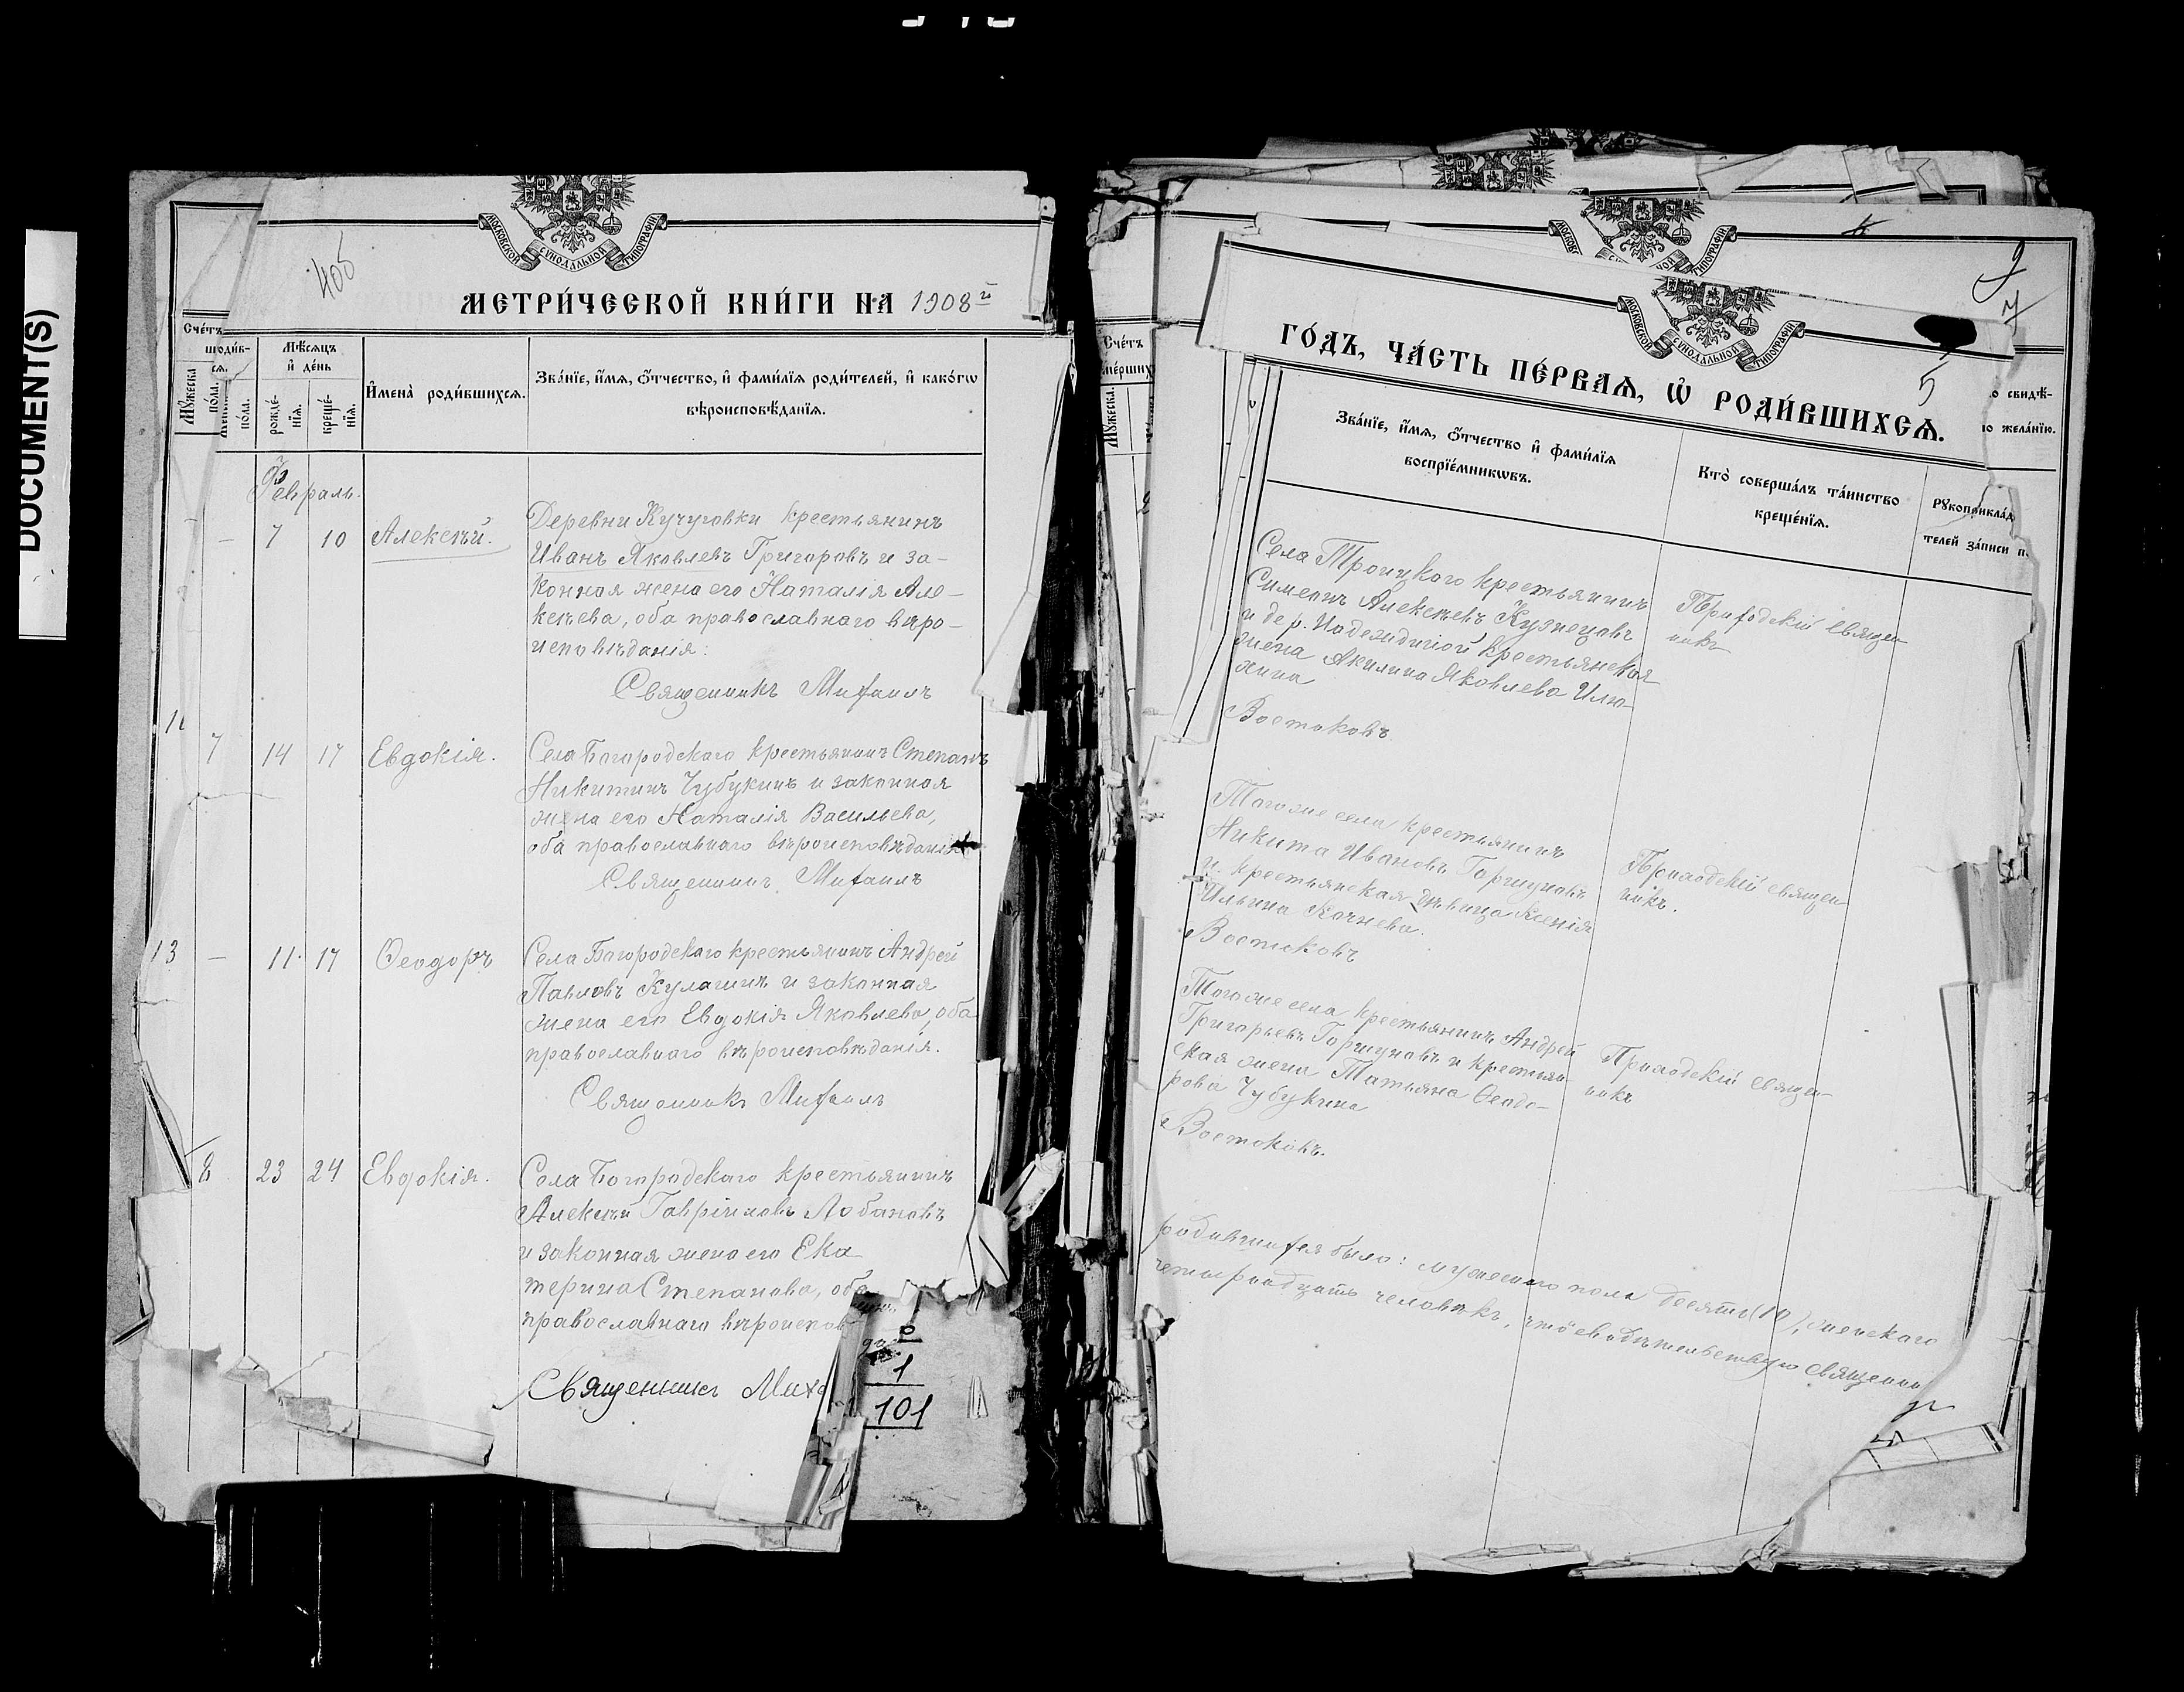 DOCUMENT(S)
МОСКОВСКОЙ СѴНОДАЛЬНОЙ ТИПОГРАФІИ
405
МЕТРИ́ЧЕСКОЙ КНИ́ГИ НА 1908й
Сче́тъ
Мѣ́сяцъ и҆ де́нь
рожде́нїѧ.
креще́нїѧ.
И҆мена̀ роди́вшихсѧ.
Зва́нїе, и҆́мѧ, ѻ҆́тчество, и҆ фами́лїѧ роди́телей, и҆ како́гѡ
вѣроисповѣ́данїѧ.
Мꙋ́жеска по́ла.
Февраль.
— 7 10 Алексѣй.
Деревни Кучуговки крестьянинъ
Иванъ Яковлевъ Григоровъ и за-
конная жена его Наталія Але-
ксѣева, оба православнаго вѣро-
исповѣданія.
Священникъ Михаилъ
7 14 17 Евдокія.
Села Богородскаго крестьянинъ Степанъ
Никитинъ Чубукинъ и законная
жена его Наталія Васильева,
оба православнаго вѣроисповѣданія
Священникъ Михаилъ
13 — 11. 17 Ѳеодоръ
Села Богородскаго крестьянинъ Андрей
Павловъ Кулагинъ и законная
жена его Евдокія Яковлева, оба
православнаго вѣроисповѣданія.
Священникъ Михаилъ
8 23 24 Евдокія.
Села Богородскаго крестьянинъ
Алексѣй Гавріиловъ Лобановъ
и законная жена его Ека
терина Степанова, оба
православнаго вѣроиспов
Священникъ Мих
1
101
МОСКОВСКОЙ СѴНОДАЛЬНОЙ ТИПОГРАФІИ
МОСКОВСКОЙ СѴНОДАЛЬНОЙ ТИПОГРАФІИ
5
ГО́ДЪ, ЧА́СТЬ ПЕ́РВАѦ, Ѡ҆ РОДИ́ВШИХСѦ.
Сче́тъ
ме́рших
Мꙋ́жеска
о свидѣ-
по жела́нїю.
Зва́нїе, и҆́мѧ, ѻ҆́тчество и҆ фами́лїѧ
воспрїе́мникѡвъ.
Кто̀ соверша́лъ та́инство
креще́нїѧ.
Рꙋкоприкла́д
телей за́писи п
Села Троицкаго крестьянинъ
Симеонъ Алексѣевъ Кузнецовъ
и дер. Надеждиной крестьянская
жена Акилина Яковлева Илю-
хина
Востоковъ
Приходскій священ
никъ
Тогоже села крестьянинъ
Никита Ивановъ Горшуновъ
и крестьянская дѣвица Ксенія
Ильина Кочнева.
Востоковъ
Приходскій священ
никъ.
Тогоже села крестьянинъ Андрей
Григорьевъ Горшуновъ и крестьян-
ская жена Татьяна Ѳеодо-
рова Чубукина
Востоковъ.
Приходскій священ-
никъ
родившихся было: мужескаго пола десять (10), женскаго
четырнадцать человѣкъ, что свидѣтельствую священни